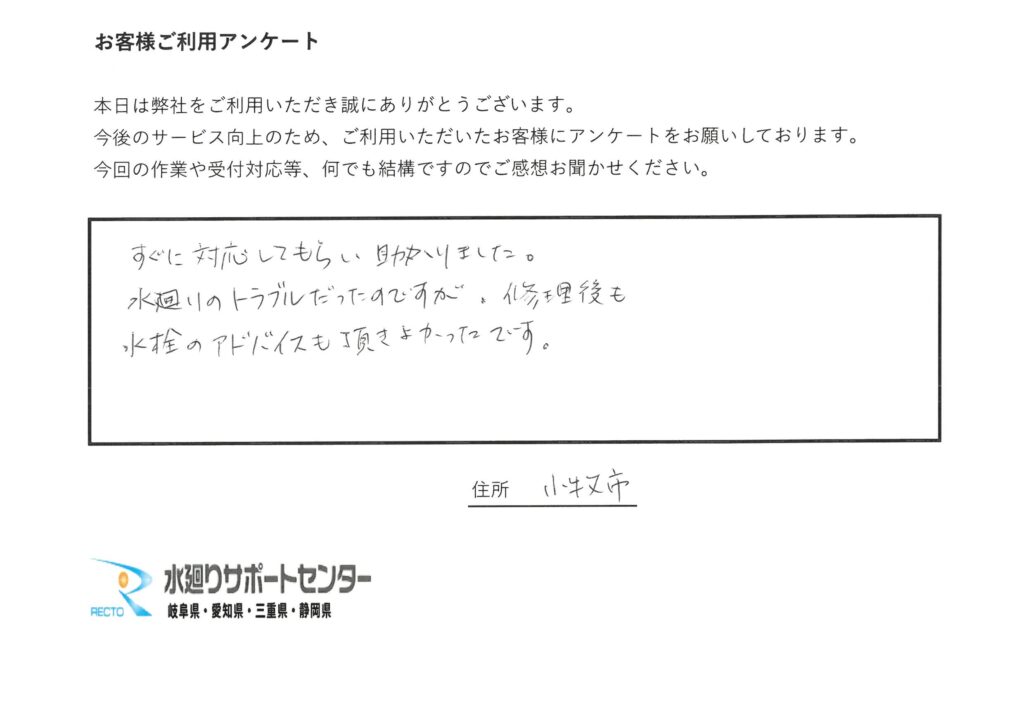 お客様ご利用アンケート
本日は弊社をご利用いただき誠にありがとうございます。
今後のサービス向上のため、ご利用いただいたお客様にアンケートをお願いしております。
今回の作業や受付対応等、何でも結構ですのでご感想お聞かせください。
すぐに対応してもらい助かりました。
水廻りのトラブルだったのですが、修理後も
水栓のアドバイスも頂きよかったです。
住所 小牧市
RECTO
水廻りサポートセンター
岐阜県・愛知県・三重県・静岡県